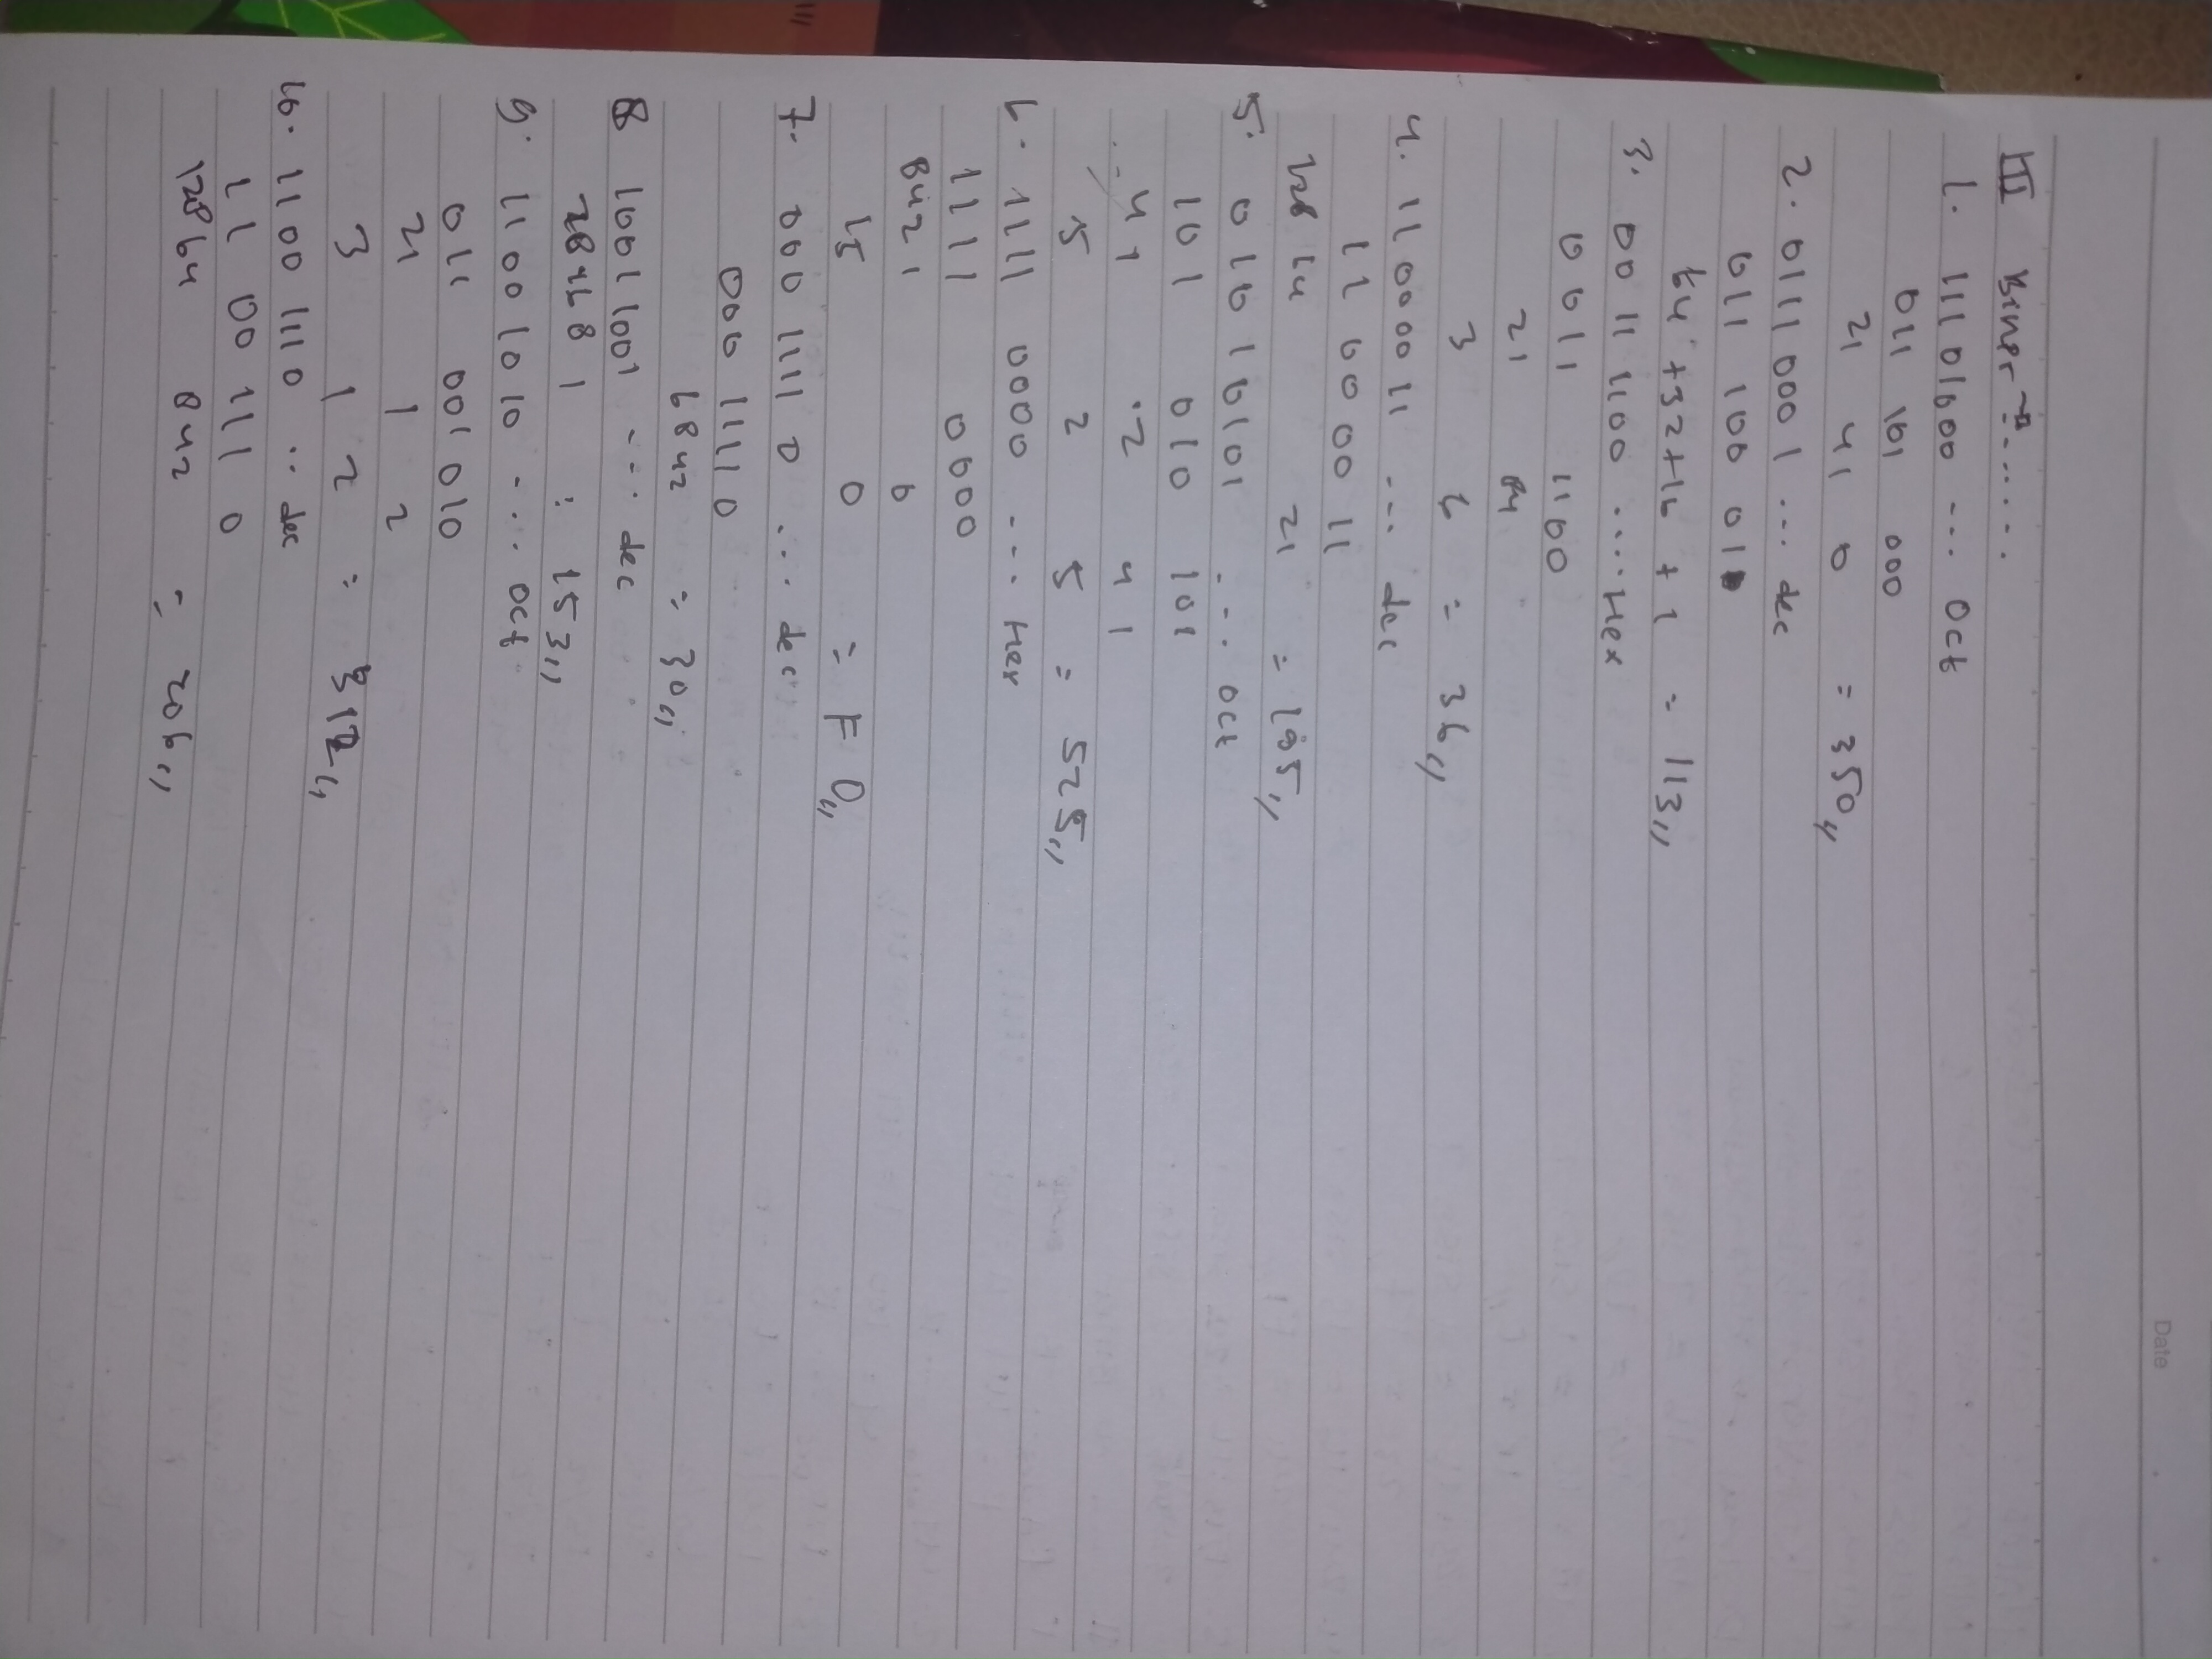 Date
III Biner ......
1. 11101000 ... Oct
011 101 000
21 41 0 = 350,,
2. 01110001 ... dec
011 100 01
64 +32+16 + 1 = 113,,
3. 0011 1100 .... Hex
0011 1100
21 84
3 6 = 36,,
4. 11000011 ... dec
11 00 00 11
128 64 21 = 195,,
5. 01010101 .... oct
101 010 101
41 2 41
5 2 5 = 525,,
6. 1111 0000 ... Hex
1111 0000
8421 0
15 0 = F0,,
7. 000 1111 0 ... dec
0000 1111 0
6842 = 30,,
8 10011001 ... dec
28468 1 : 153,,
9. 11001010 .... Oct
011 001 010
21 1 2
3 1 2 = 312,,
10. 1100 1110 .. dec
11 00 111 0
128 64 842 = 206,,